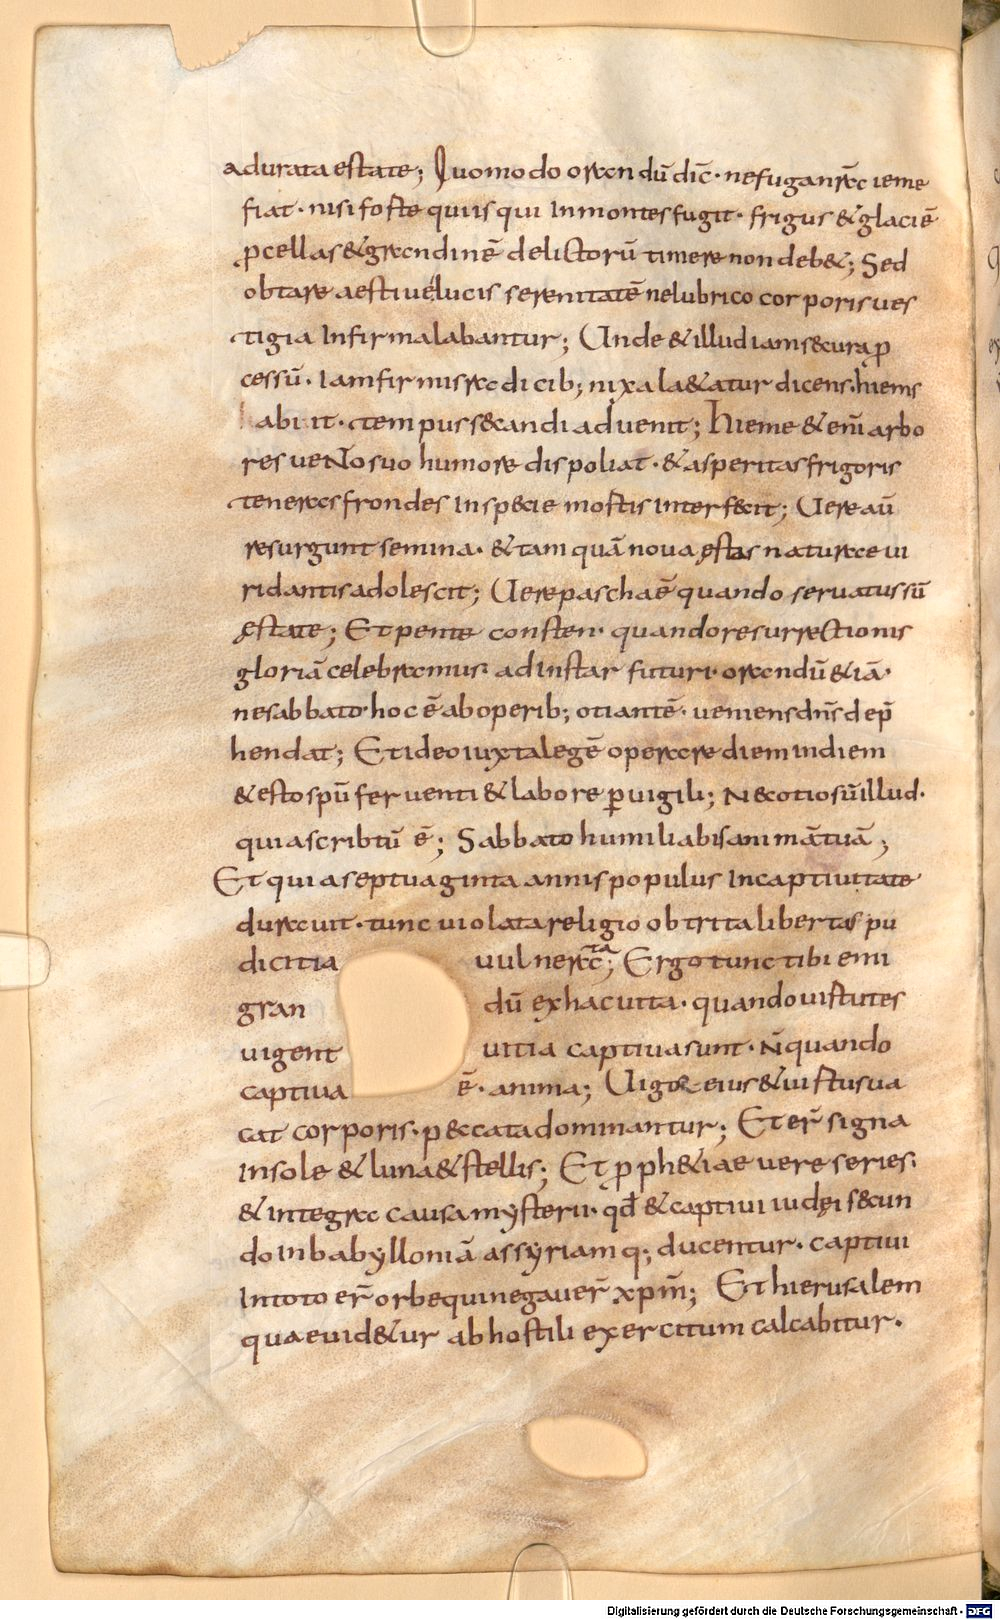 adurata estate; Quomodo orandū dic̄· ne fuga nr̄a ieme
fiat· nisi forte quiisqui In montes fugit· frigus & glaciē
p̱cellas & grandinē delictorū timere non deb&; Sed
obtare aestiuę́ lucis serenitatē ne lubrico corporis ues
tigia Infirma labantur; Unde & illud iam secura ꝓ
cessū· Iam firmis radicib; nixa la&atur dicens· hiems
abiit· tempus secandi aduenit; Hieme & eni̅ arbo
res ueNo suo humore dispoliat· & asperitas frigoris
teneras frondes In specie mortis interfecit; Uere au̅
resurgunt semina· & tam quā noua ęstas naturae ui
ridantis adolescit; Uere paschaē quando seruatus sū
ęstate; Et pente consten· quando resurrectionis
gloriā celebramus· ad instar futuri· orandū & iā·
ne sabbato hoc ē ab operib; otiantē· ueniens dn̄s dep̄
hendat; Et ideo iuxta legē operare diem in diem
& esto sp̄u feruenti & labore p̱uigili; Nec otiosū illud·
quia scribtū ē; Sabbato humiliabis animā tuā;
Et quia septuaginta annis populus In captiuitate
durauit· tunc uiolata religio obtrita libertas pu
dicitia uulnerata; Ergo tunc tibi emi
gran dū ex hac uita· quando uirtutes
uigent uitia captiua sunt· N̄ quando
captiua ē· anima; Uigor eius & uirtus ua
cat corporis· peccata dominantur; Et er̄ signa
In sole & luna & stellis; Et ꝓph&iae uere series·
& integra causa mysterii· qd̄ & captiui iudęi secun
do in babylloniā assyriam q; ducentur· captiui
In toto er̄ orbe qui negauer̄ xp̄m̄; Et hierusalem
quae uid&ur ab hostili exercitum calcabitur·
Digitalisierung gefördert durch die Deutsche Forschungsgemeinschaft - DFG